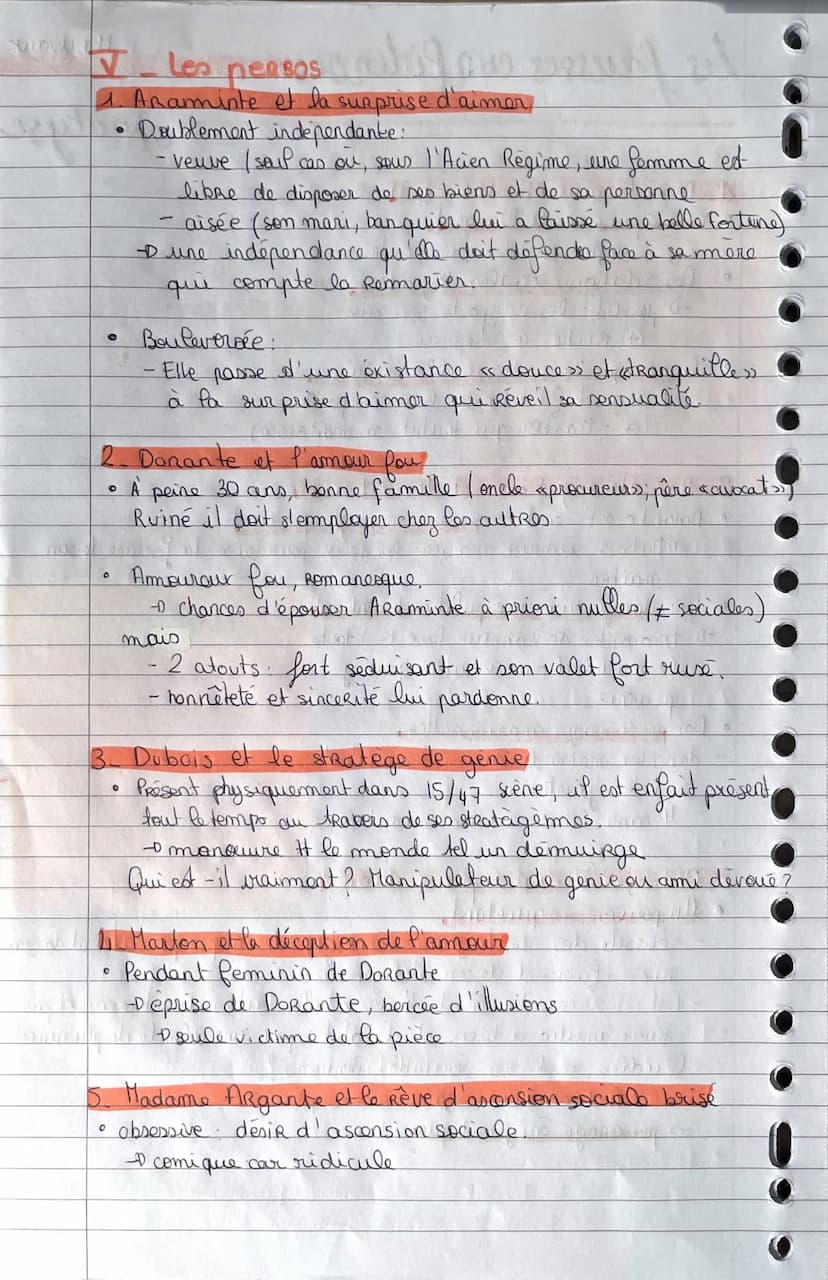 V - Les persos
1. Araminte et la surprise d'aimer
• Doublement indépendante:
- veuve (seul cas où, sous l'Acien Régime, une femme est
libre de disposer de ses biens et de sa personne
- aisée (son mari, banquier lui a laissé une belle fortune)
→ une indépendance qu'elle doit défendre face à sa mère
qui compte la remarier.
• Bouleversée:
- Elle passe d'une éxistance «douce» et «tranquille»
à la surprise d'aimer qui réveil sa sensualité.
2- Dorante et l'amour fou
• À peine 30 ans, bonne famille (oncle «procureur»; père «avocat»)
Ruiné il doit s'employer chez les autres
• Amoureux fou, romanesque.
→ chances d'épouser Araminte à priori nulles (≠ sociales)
mais
- 2 atouts: fort séduisant et son valet fort rusé.
- honnêteté et sincerité lui pardonne.
3- Dubois et le stratège de génie
• Présent physiquement dans 15/47 scène, il est enfait présent
tout le temps au travers de ses stratagèmes.
→ manœuvre tt le monde tel un démuirge
Qui est-il vraiment? Manipulateur de genie ou ami dévoué?
4- Marton et la déception de l'amour
• Pendant feminin de Dorante
→ éprise de Dorante, bercée d'illusions
→ seule victime de la pièce
5- Madame Argante et le rêve d'ascension sociale brisé
• obsessive: désir d'ascension sociale.
→ comique car ridicule